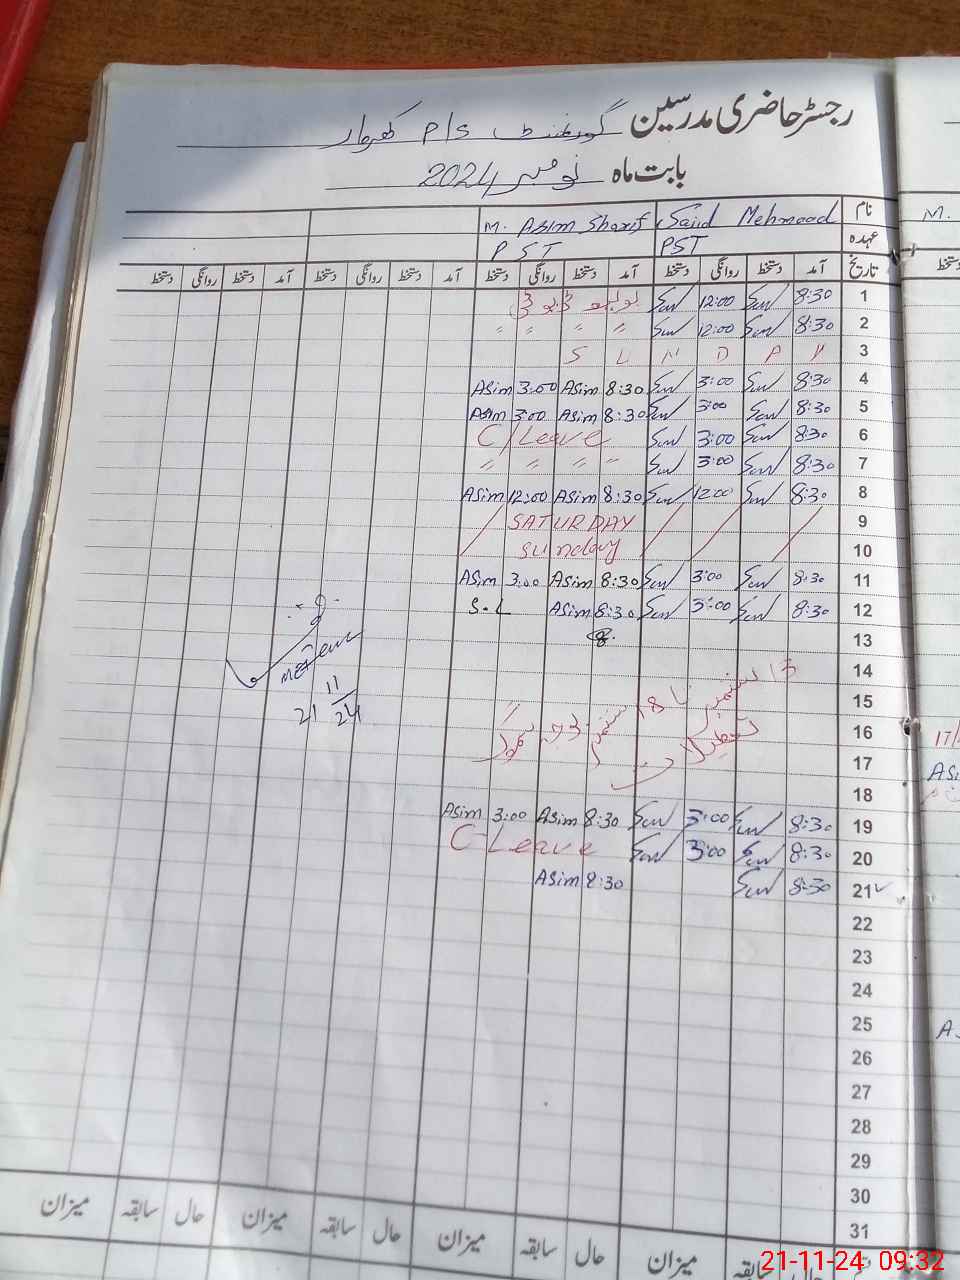 رجسٹر حاضری مدرسین گورنمنٹ P/S کھروار
بابت ماہ نومبر 2024
نام Sajid Mehmood M. Asim Sharif
عہدہ PST PST
تاریخ آمد دستخط روانگی دستخط آمد دستخط روانگی دستخط آمد دستخط روانگی دستخط آمد دستخط روانگی دستخط
1 8:30 12:00
2 8:30 12:00 " " " "
3 S U N D A Y
4 8:30 3:00 8:30 Asim 3:00 Asim
5 8:30 3:00 8:30 Asim 3:00 Asim
6 8:30 3:00 C/Leave
7 8:30 3:00 " " " "
8 8:30 12:00 8:30 Asim 12:00 Asim
9 SATURDAY
10 Sunday
11 8:30 3:00 8:30 Asim 3:00 Asim
12 8:30 3:00 8:30 Asim S.L
13
14
15
16
17
18
13 تا 18 سموگ
تعطیلات
19 8:30 3:00 8:30 Asim 3:00 Asim
20 8:30 3:00 C-Leave
21 8:30 8:30 Asim
22
23
24
25
26
27
28
29
30
31
21/11/24
حال سابقہ میزان حال سابقہ میزان حال سابقہ میزان حال سابقہ میزان
M.
دستخط
17/
Asi
A
21-11-24 09:32